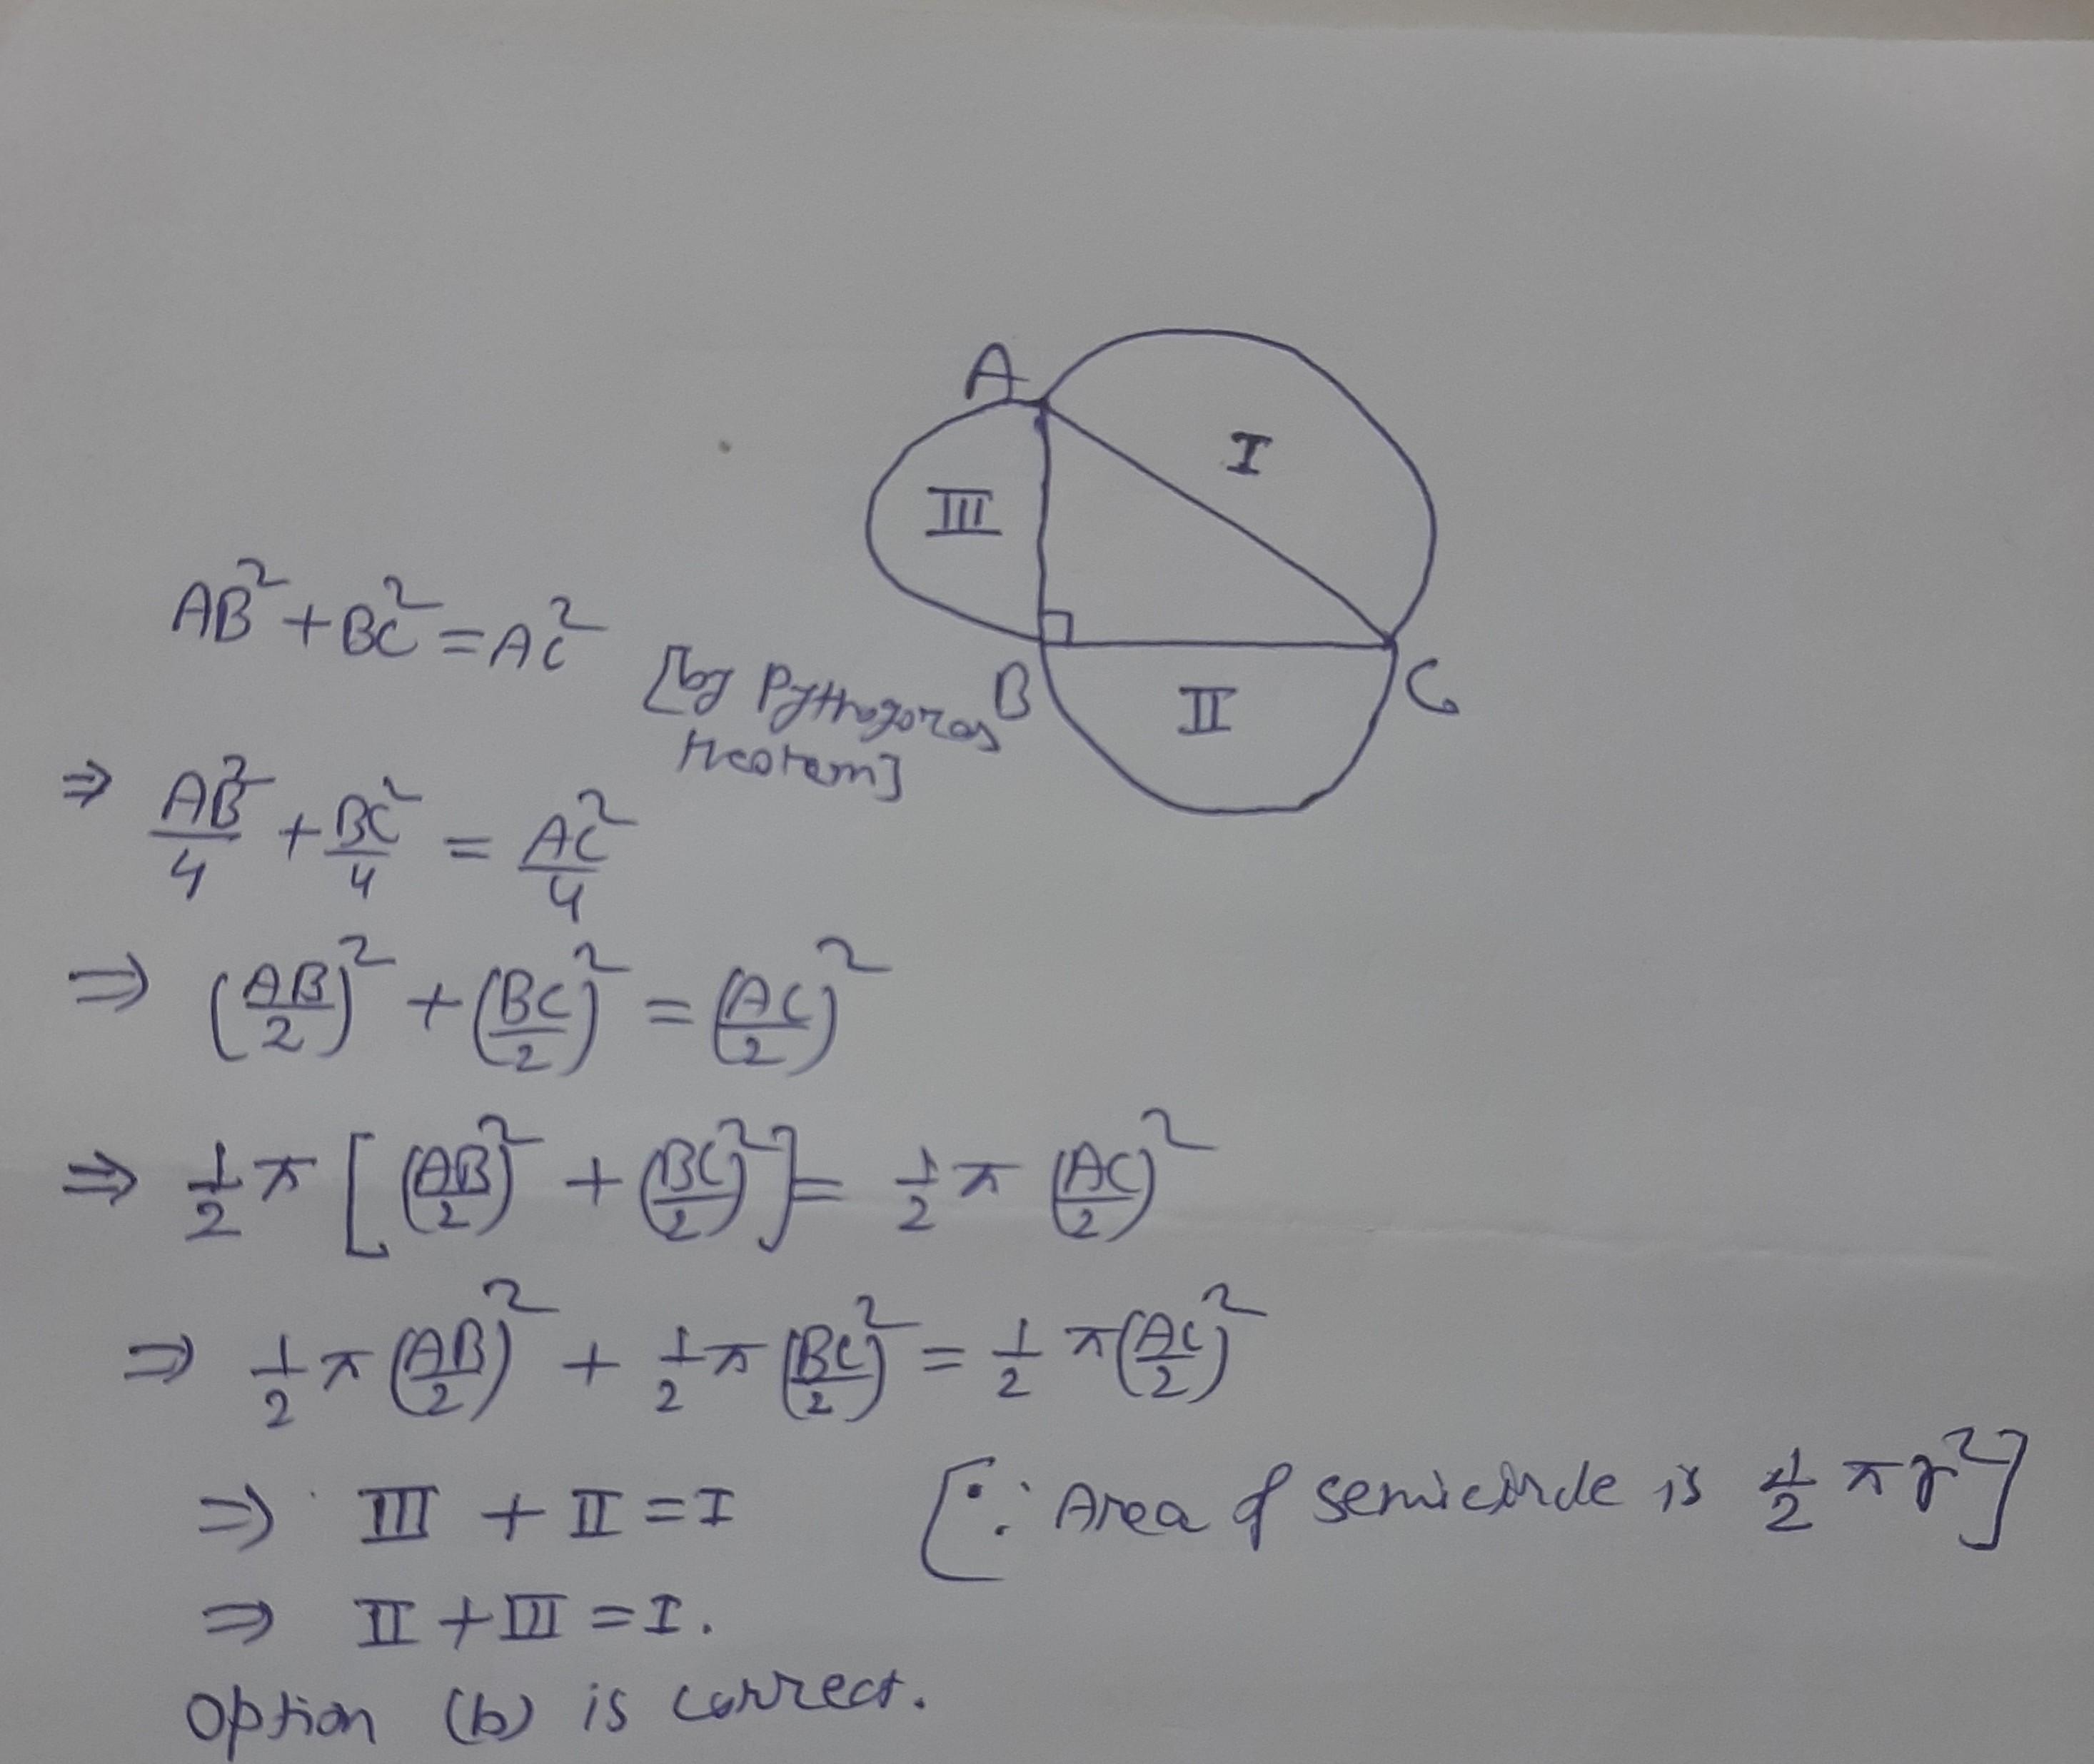 A
I
III
B
C
II
AB² + BC² = AC² [by Pythogoras
theorem]
⇒ AB²/4 + BC²/4 = AC²/4
⇒ (AB/2)² + (BC/2)² = (AC/2)²
⇒ 1/2 π [(AB/2)² + (BC/2)²] = 1/2 π (AC/2)²
⇒ 1/2 π (AB/2)² + 1/2 π (BC/2)² = 1/2 π (AC/2)²
⇒ III + II = I [∵ Area of semicircle is 1/2 π r²]
⇒ II + III = I.
Option (b) is correct.